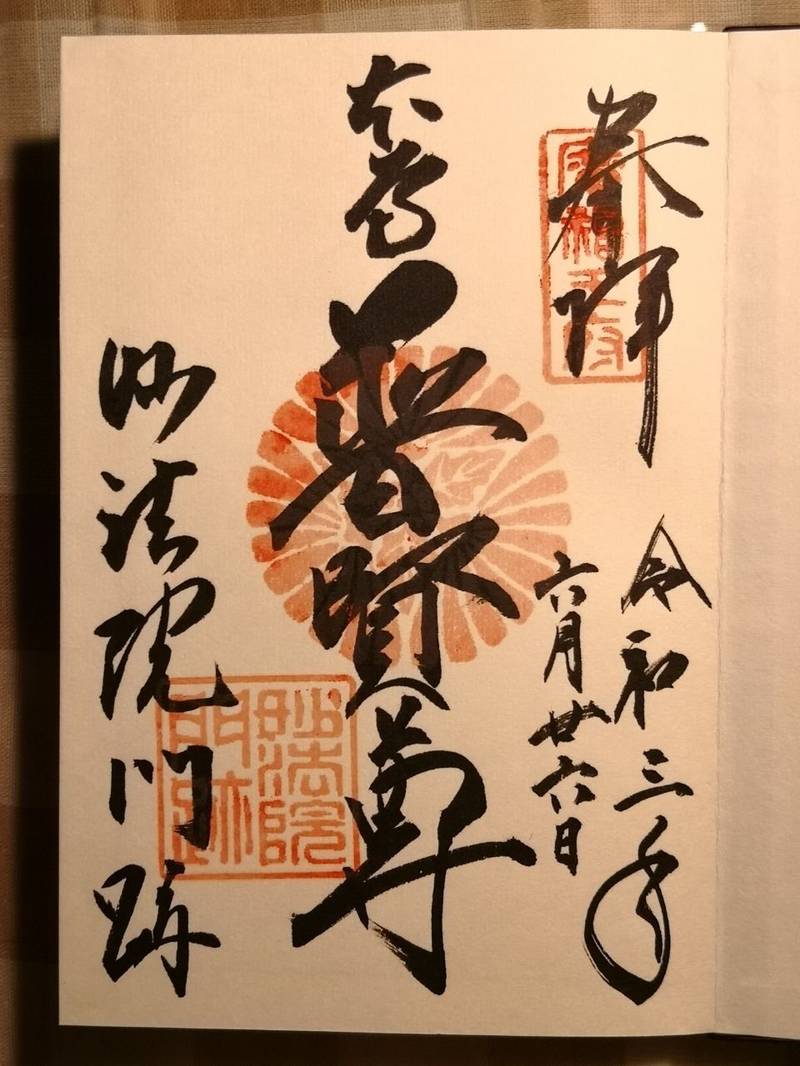 奉拝
令和三年
六月廿六日
本尊
普賢尊
妙法院門跡
妙法院
門跡